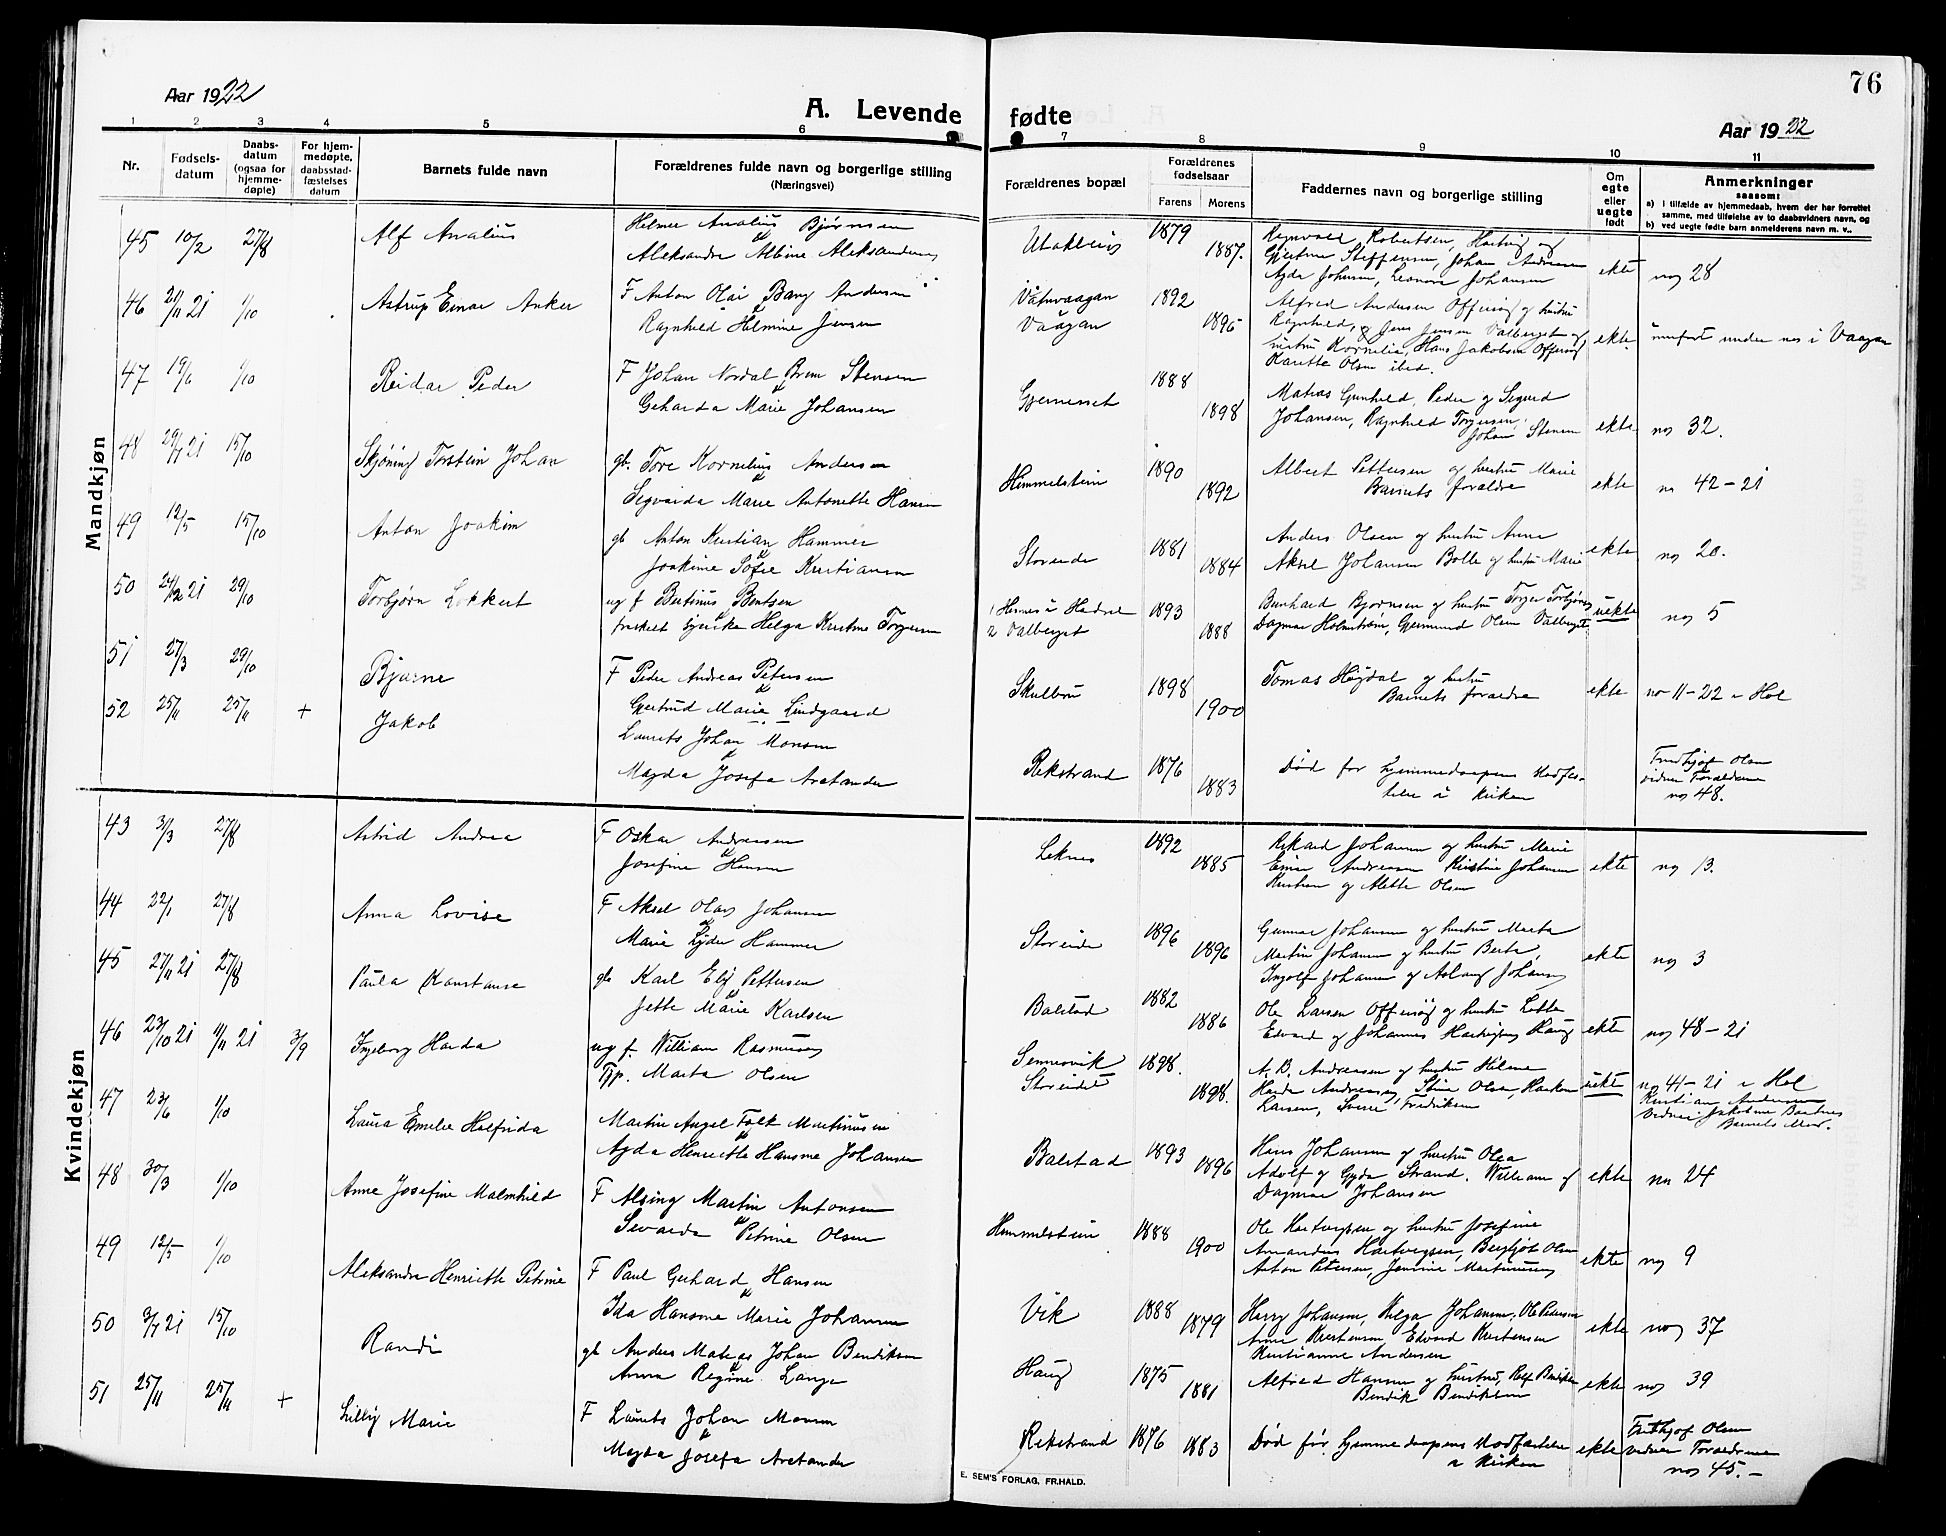 76
Aar 1922
A. Levende fødte
Aar 1922
1 2 3 4 5 6 7 8 9 10 11
Nr.
Fødsels-
datum
Daabs-
datum
(ogsaa for
hjemme-
døpte)
For hjem-
medøpte,
daabsstad-
fæstelses
datum
Barnets fulde navn
Forældrenes fulde navn og borgerlige stilling
(Næringsvei)
Forældrenes bopæl
Forældrenes
fødselsaar
Farens Morens
Faddernes navn og borgerlige stilling
Om
egte
eller
uegte
født
Anmerkninger
saasom:
a) i tilfælde av hjemmedaab, hvem der har forrettet
samme, med tilføielse av to daabsvidners navn, og
b) ved uegte fødte barn anmelderens navn m. v..
Mandkjøn
45 10/2 27/8 Alf Analius
Helmer Analius Bjørnsen
Aleksandra Albine Aleksandersen
1879 1887.
Reinvald Robertsen, Hartvig og
Gjertine Steffensen, Johan Andreasen
Agda Johansen, Leonora Johansen
ekte
no 28
46 21/11 21 1/10 Astrup Einar Anker
F Anton Olai Bang Andersen
Ragnhild Helmine Jensen
Vaagan
1892 1895
Alfred Andersen Offersøi og hustru
Ragnhild, og Jens Jensen Valberget og
hustru Kornelia, Hans Jakobsen Offersøi
Karette Olsen ibid.
ekte
innført under no i Vaagan
47 19/6 1/10 Reidar Peder
F Johan Nordal Brun Stensen
Geharda Marie Johansen
Gjerneset
1888 1898
Matias Gunhild, Peder og Sigurd
Johansen, Ragnhild Torgersen,
Johan Stensen
ekte
no 32.
48 29/7 21 15/10 Skjøning Torstein Johan
gb. Tore Kornelius Andersen
Segvarda Marie Antonette Hansen
Himmelstein
1890 1892
Albert Pettersen og hustru Marie
Barnets foraldre
ekte
no 42-21
49 12/5 15/10 Anton Joakim
gb Anton Kristian Hammer
Joakime Sofie Kristiansen
Storeide
1881 1884
Anders Olsen og hustru Anna
Aksel Johansen Bolle og hustru Marie
ekte
no 20.
50 24/12 21 29/10 Torbjørn Lokkert
ug f Bertinus Bentsen
fraskilt Helga Kristine Torgersen
1 Hennes i Hadsel
2 Valberget
1893 1888
Bernhard Bjørnsen og hustru Torger Torbjørnsen
Dagmar Holmstrøm, Gjermund Olsen Valberget
uekte
no 5
51 27/3 29/10 Bjarne
F Peder Andreas Petersen
Gjertrud Marie Lindgaard
Skulbru
1898 1900
Tomas Høgdal og hustru
Barnets foraldre
ekte
no 11-22 i Hol
52 25/11 25/11 + Jakob
Laurets Johan Monsen
Magda Josefa Arstander
Rekstrand
1876 1883
Død før hjemmedaapens stadfes-
telse i kirken
Fridthjof Olsen
vidner Foraldrene
no 48.
Kvindekjøn
43 3/3 27/8 Astrid Andrea
F Oskar Andreassen
Josefine Hansen
Leknes
1892 1885
Rikard Johansen og hustru Marie
Einar Andreasen Kristine Johansen
Kristian og Alette Olsen
ekte
no 13.
44 22/1 27/8 Anna Lovise
F Aksel Olaus Johansen
Marie Lyder Hammer
Storeide
1896 1896
Gunnar Johansen og hustru Marta
Martin Johansen og hustru Berta,
Ingolf Johansen og Aslaug Johansen
ekte
no 3
45 27/11 21 27/8 Paula Konstanse
gb Karl Elij Pettersen
Jette Marie Karlsen
Balstad
1882 1886
Ole Larsen Offersøi og hustru Lotte
Edvard og Johannes Hartvigsen Haug
ekte
no 48-21
46 23/10 21 11/11 21 3/9 Ingeborg Harda
ug f. William Rasmussen
Tjp. Marta Olsen
Sennesvik
Storeidet
1898. 1898.
A. B. Andreassen og hustru Hilma
Harda Andreassen, Stina Olsen, Haakon
Larsen, Sverre Fredriksen
uekte
no 41-21 i Hol
Kristian Andersen
vidner: Jakobine Barnes
Barnets Mor.
47 23/6 1/10 Laura Emelie Halfrida
Martin Angel Falk Martinussen
Agda Henriette Hansine Johansen
Balstad
1893 1896
Hans Johansen og hustru Olea
Adolf og Gyda Strand. William og
Dagmar Johansen
ekte
no 24
48 30/3 1/10 Anne Josefine Malmhild
F Alsing Martin Antonsen
Sevarda Petrine Olsen
Himmelstein
1888 1900
Ole Hartvigsen og hustru Josefine
Amandus Hartvigsen, Bergljot Olsen
Anton Petersen, Jensine Martinussen
ekte
no 9
49 12/5 1/10 Aleksandra Henriette Petrine
F Paul Gerhard Hansen
Ida Hansine Marie Johansen
Vik
1888 1879
Harry Johansen, Helga Johansen, Ole Petersen
Anna Kristensen Edvard Kristensen
Kristianne Andersen
ekte
no 37
50 9/7 21 15/10 Randi
gb Anders Mateas Johan Bendiksen
Anna Regine Lange
Haug
1875 1881
Alfred Hansen og hustru, Rolf Bendiksen
Bendik Bendiksen
ekte
no 39
51 25/11 25/11 + Lilly Marie
F Laurets Johan Monsen
Magda Josefa Arstander
Rekstrand
1876 1883
Død før hjemmedaapens stadfæstelse
i kirken
ekte
Fridthjof Olsen
vidner Foraldrene
no 45.-
E. SEM'S FORLAG, FR.HALD.